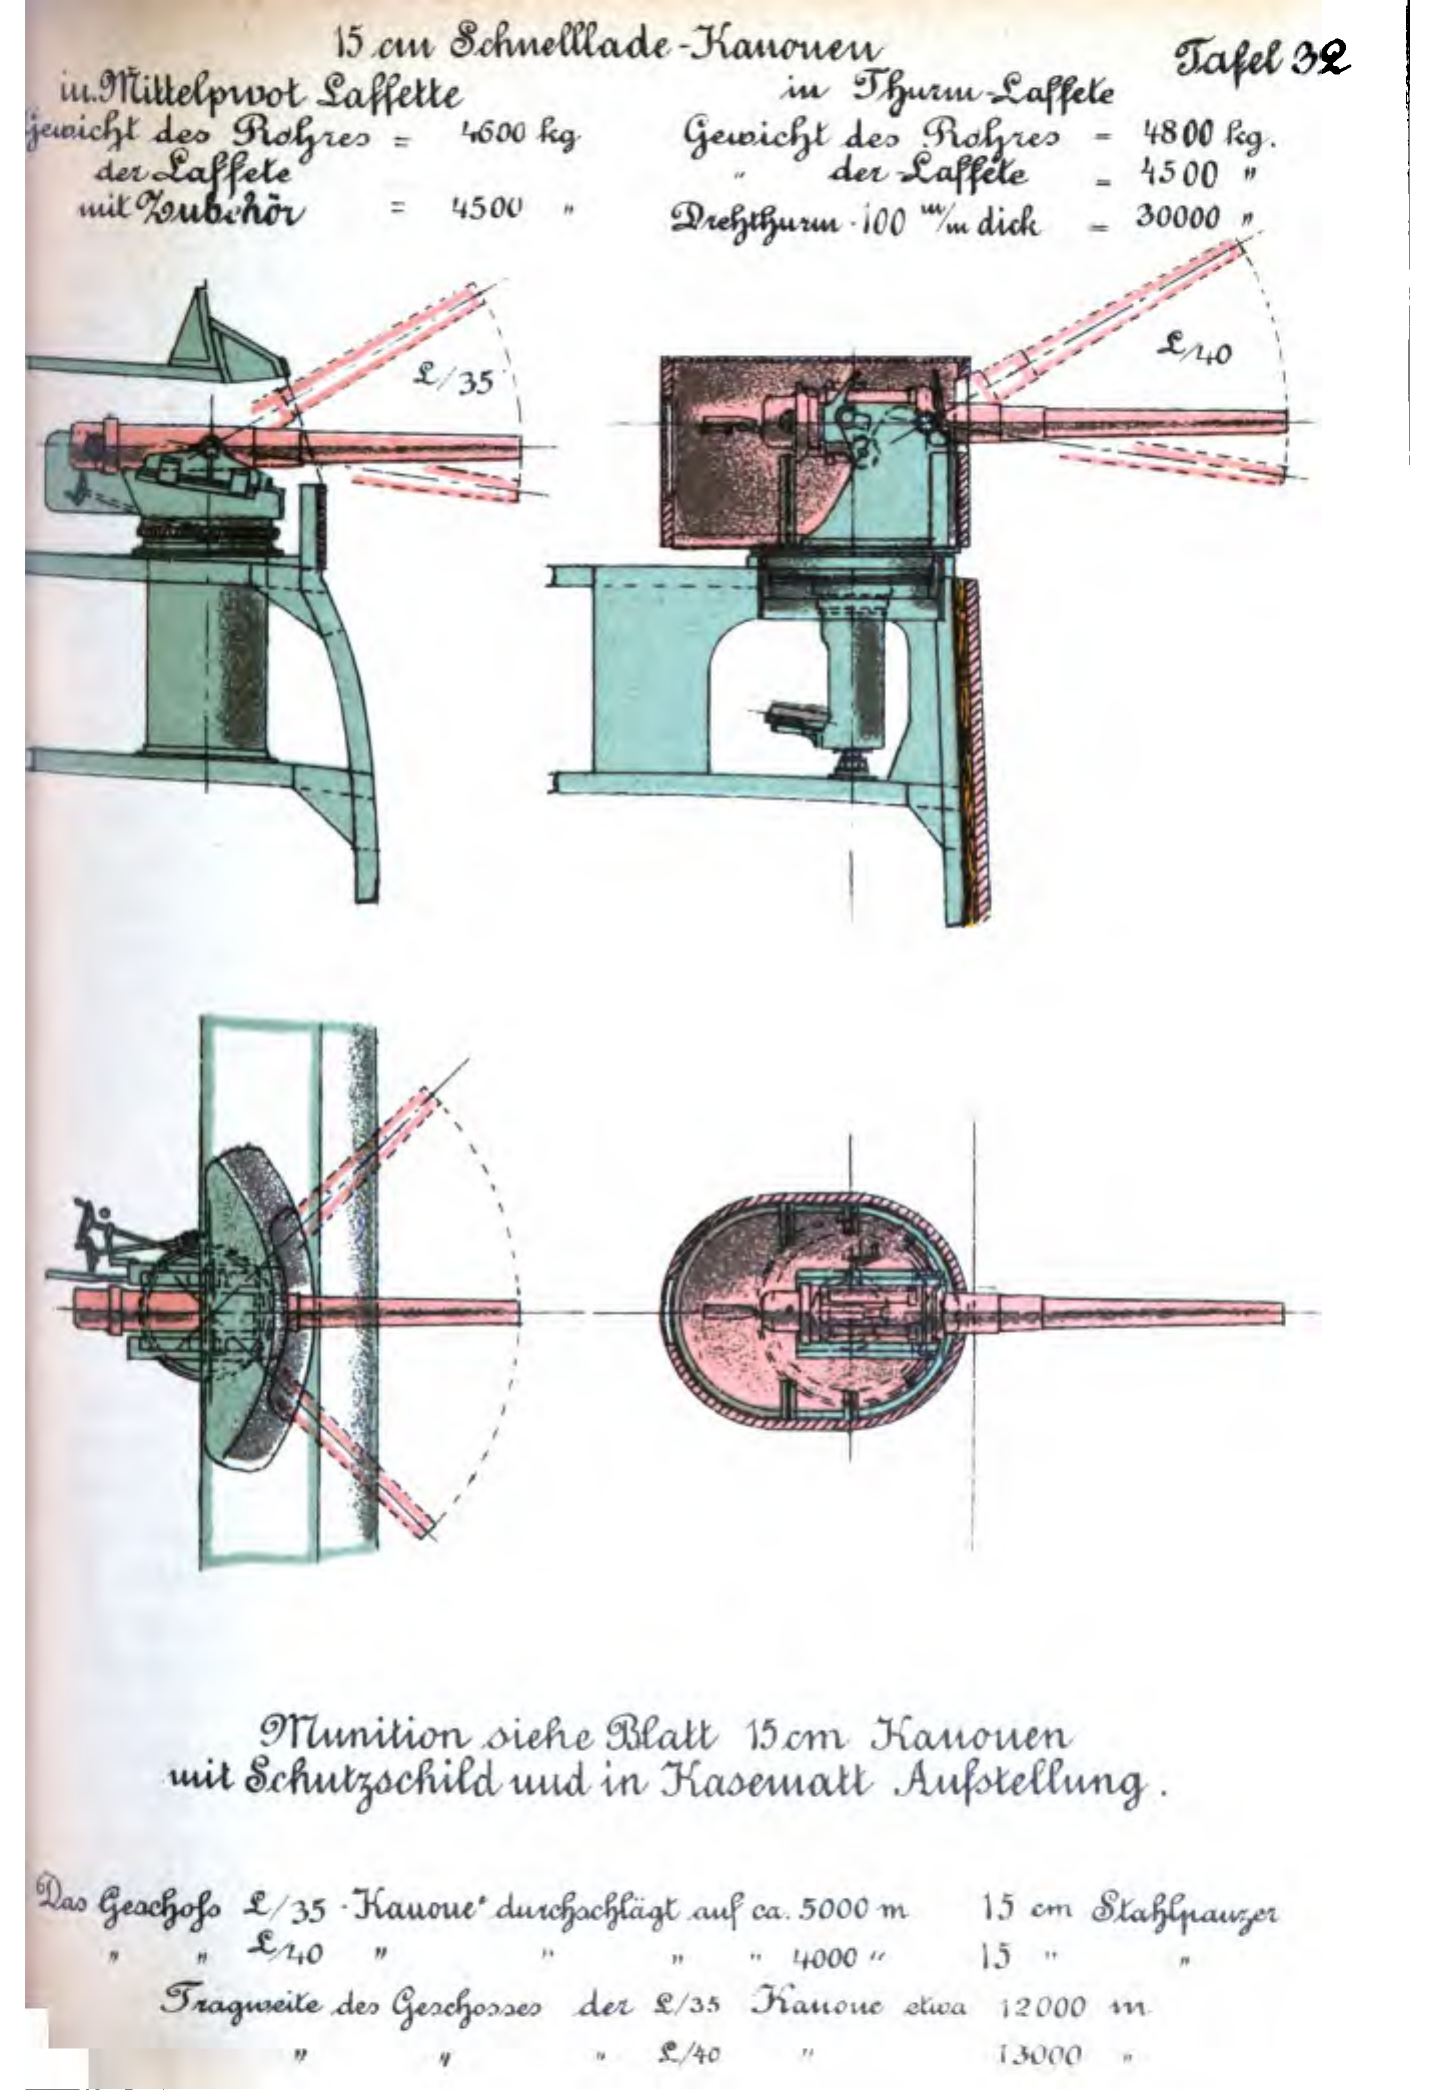 15 cm Schnelllade-Kanonen
Tafel 32
in Mittelpivot Laffette
Gewicht des Rohres = 4600 kg
der Laffete
mit Zubehör = 4500 "
in Thurm-Laffete
Gewicht des Rohres = 4800 kg.
" der Laffete = 4500 "
Drehthurm 100 m/m dick = 30000 "
L/35
L/40
Munition siehe Blatt 15 cm Kanonen
mit Schutzschild und in Kasematt Aufstellung.
Das Geschoss L/35 Kanone durchschlägt auf ca. 5000 m 15 cm Stahlpanzer
" " L/40 " " " " 4000 " 15 " "
Tragweite des Geschosses der L/35 Kanone etwa 12000 m
" " " L/40 " 13000 "